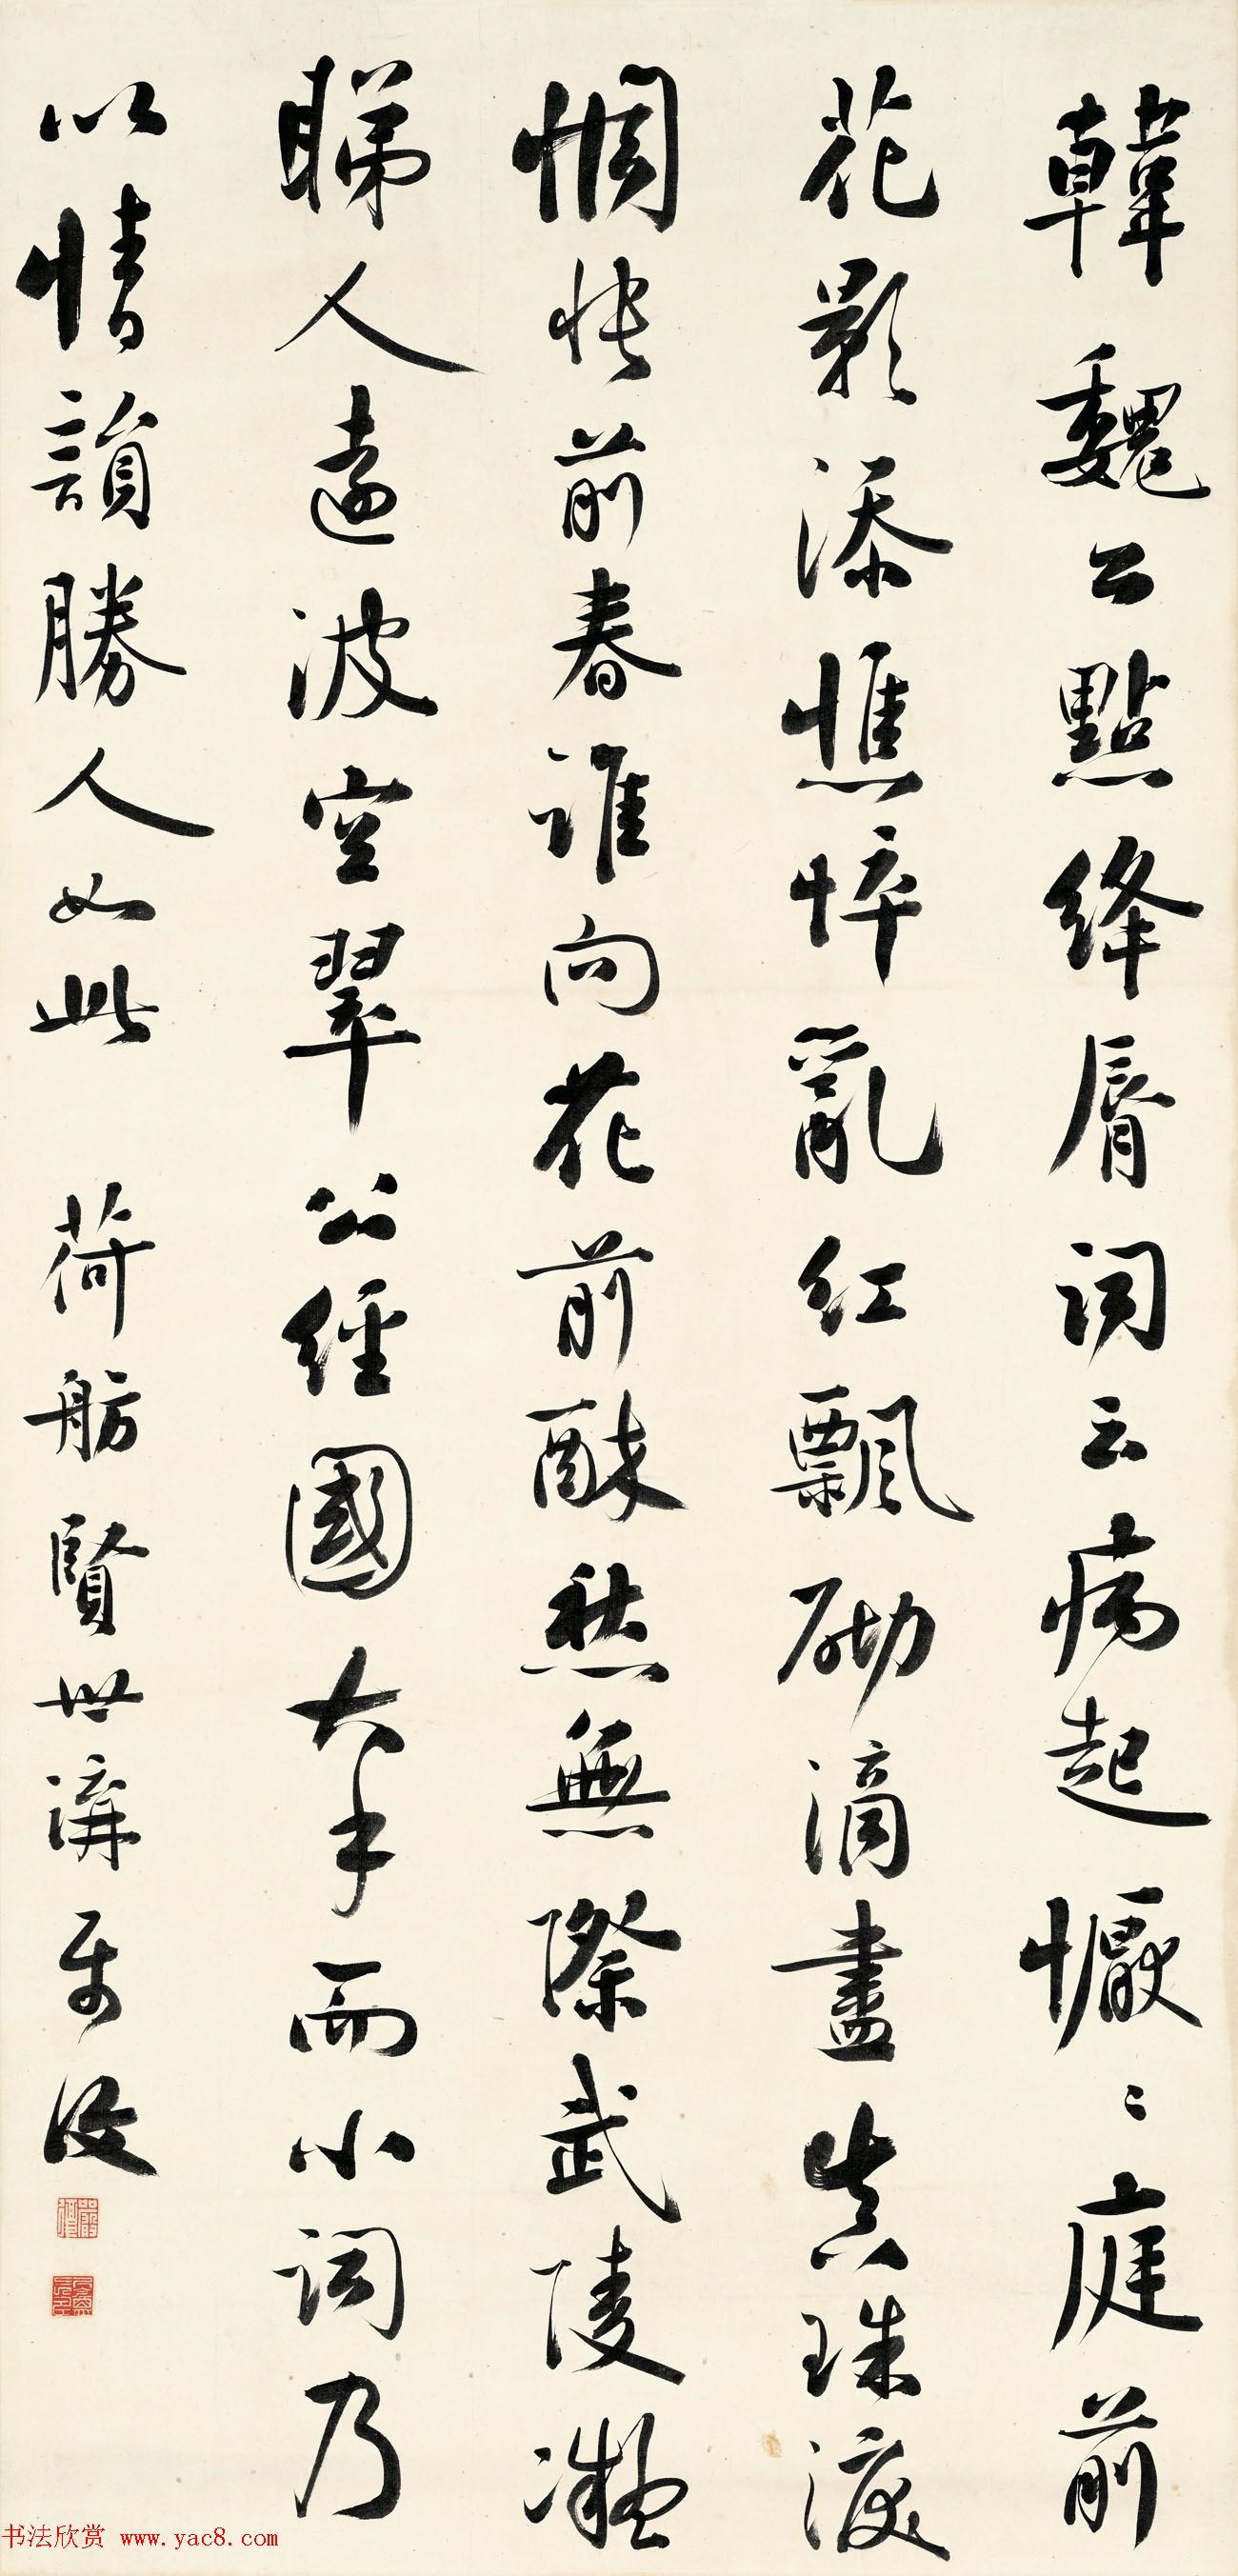 韓魏公點絳脣詞云病起懨〻庭前
花影添憔悴亂紅飄砌滴盡真珠淚
惆悵前春誰向花前醉愁無際武陵凝
睇人遠波空翠 公經國大手而小詞乃
以情韻勝人如此 荷舫賢世講屬 修
书法欣赏 www.yac8.com